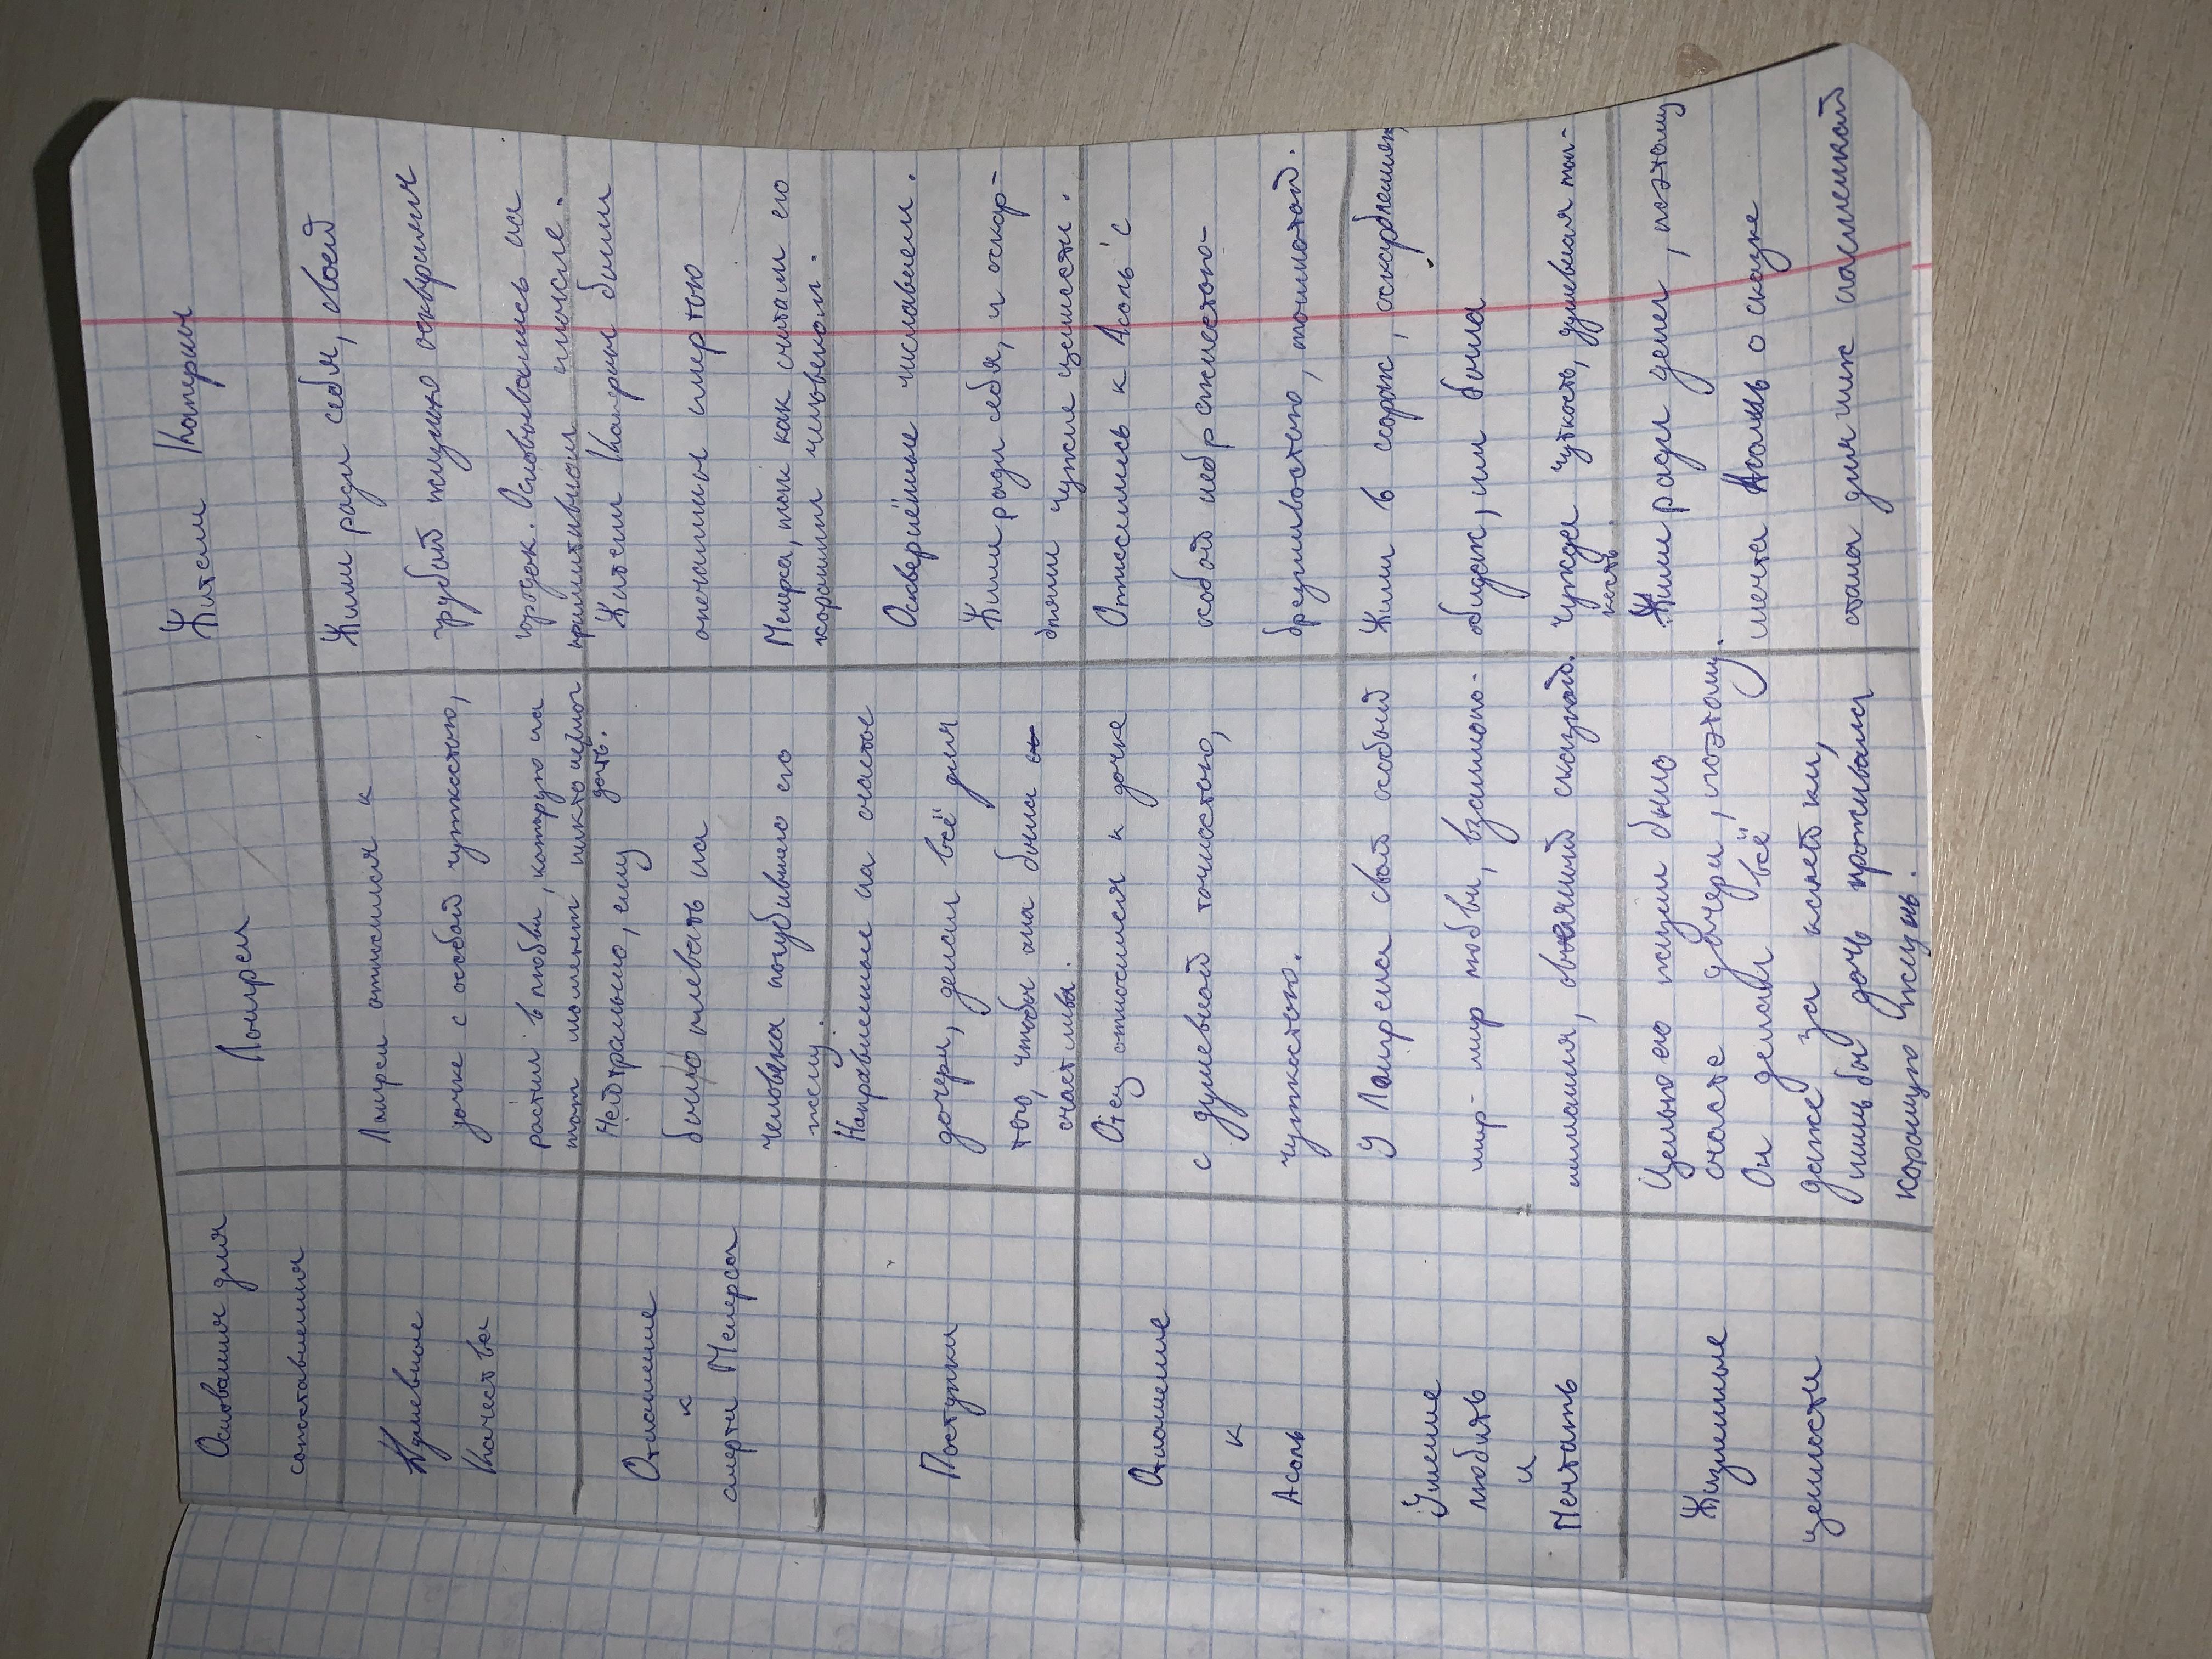 Основания для
сопоставления
Лонгрен
Жители Каперны
Душевные
качества
Лонгрен относился к
дочке с особой чуткостью,
растил в любви, которую на
тот момент никто не мог
дать.
Жили ради себя, своей
грубой жизнью осквернил
городок. Основывались на
примитивном смысле.
Отношение
к
смерти Меннерса
Нейтрально, ему
было плевать на
человека погубившего его
жену.
Жители Каперны были
опечалины смертью
Менерса, так как считали его
хорошим человеком.
Поступки
Направленные на счастье
дочери, делал всё для
того, чтобы она была
счастлива.
Осквернённые тщеславием.
Жили ради себя, и оскар-
бляли чужие ценности.
Отношение
к
Асоль
Отец относился к дочке
с душевной тонкостью,
чуткостью.
Относились к Асоль с
особой небрежностью-
брезгливостью, тошнотой.
Умение
любить
и
Мечтать
У Лонгрена свой особый
мир- мир любви, взаимопо-
нимания, овеянный сказкой.
Жили в ссорах, оскорблениях,
обидах, им была
чужда чуткость, душевная тон-
кость
Жизненные
ценности
Целью его жизни было
счастье дочери, поэтому
Он делал всё
даже за копейки,
лишь бы дочь проживала
хорошую жизнь.
Жили ради денег, поэтому
мечта Асоль о сказке
стала для них насмешкой